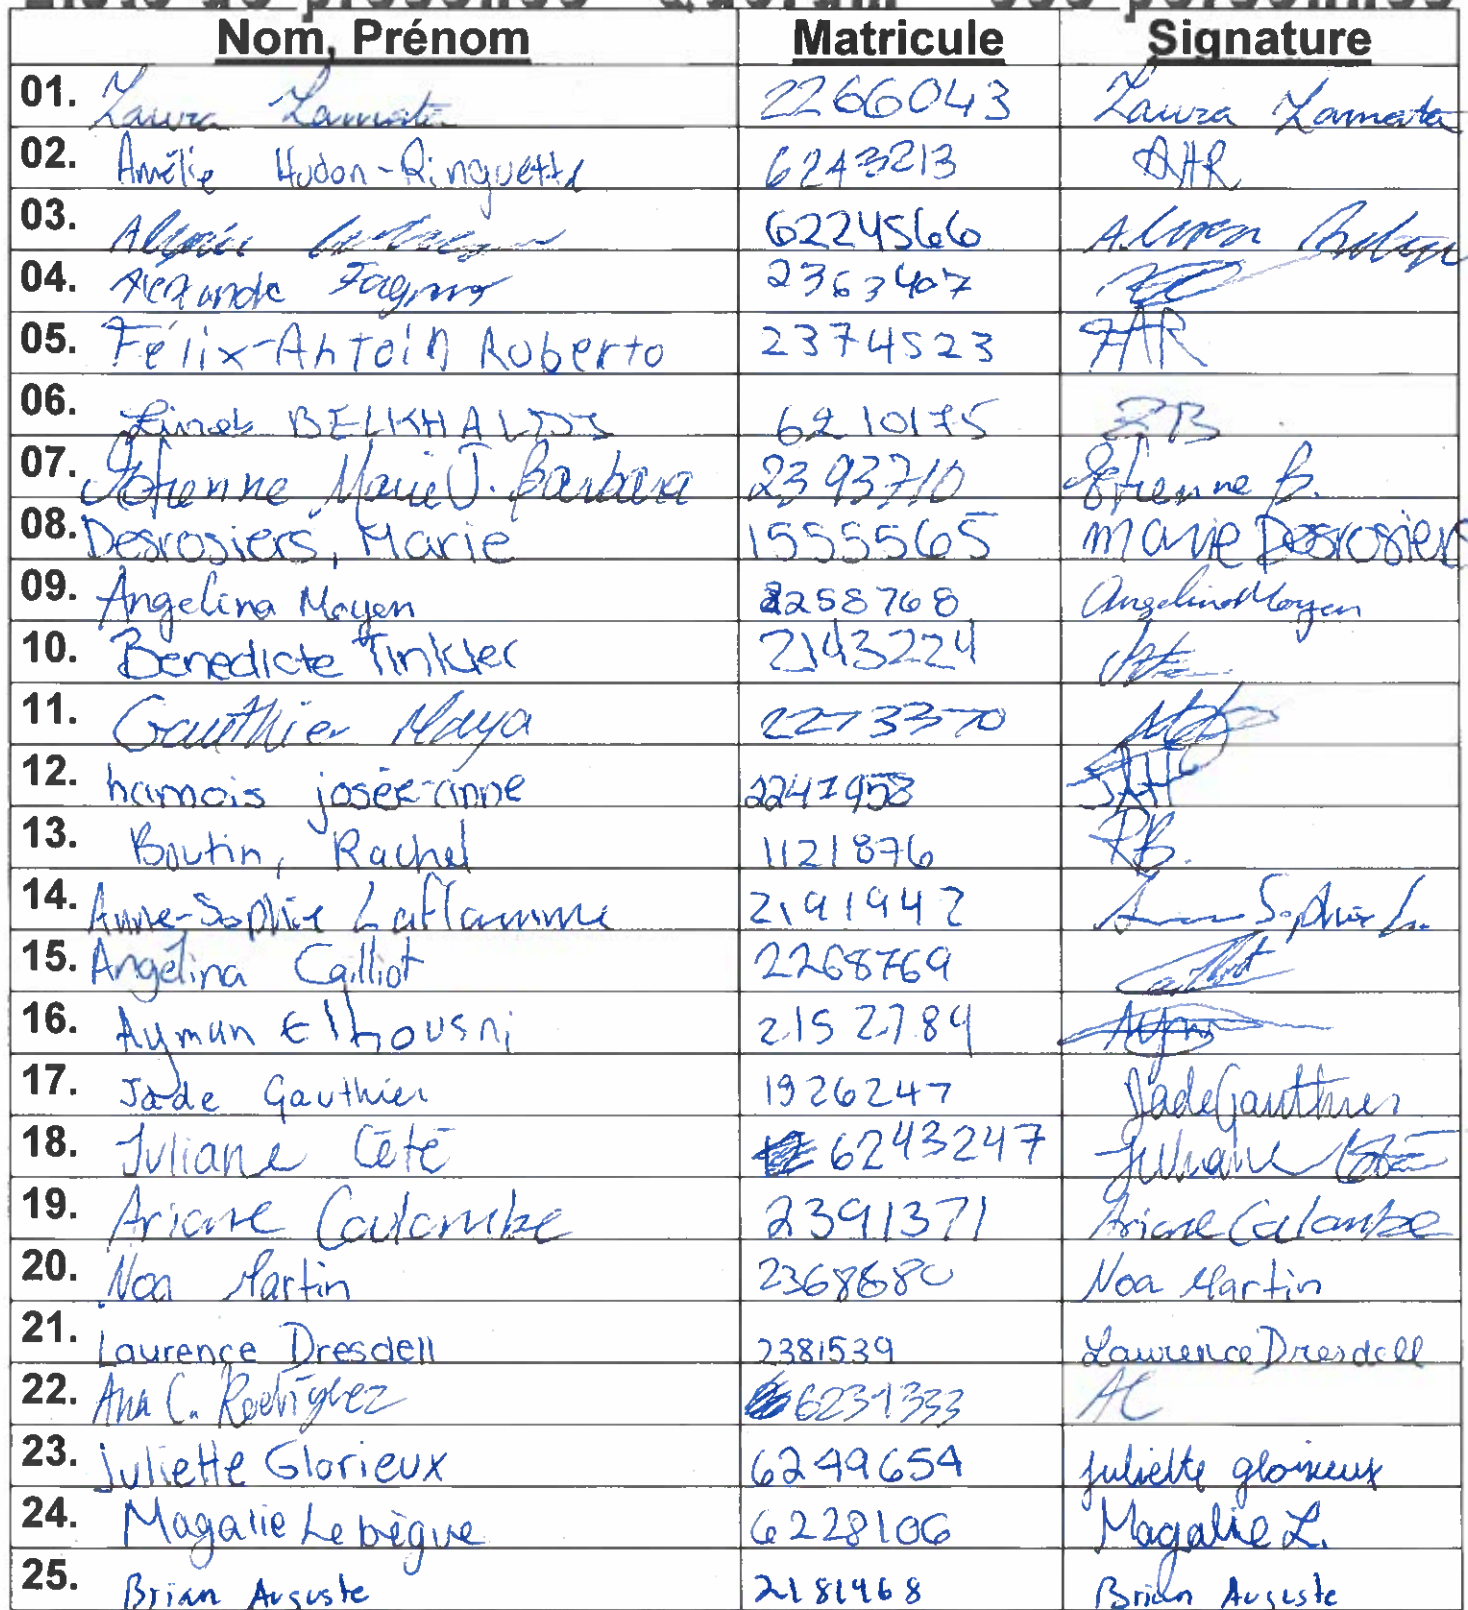 Liste de présence - Quorum
Nom, Prénom Matricule Signature
01. Laura Lamata 2266043 Laura Lamata
02. Amélie Hudon-Ringuette 6243213 AHR
03. 62245660
04. Alexandre 2363407
05. Félix-Antoin Roberto 2374523 FAR
06. BELKHA 6210175
07. Marie J. Barbara 2393710 B.
08. Desrosiers, Marie 1555565 Marie Desrosiers
09. Angelina Moyen 2258768 Angelina Moyen
10. Benedicte Tinkler 2143224
11. Gauthier Maya 2273370
12. hamois josée-anne 2247958 JAH
13. Boutin, Rachel 1121876 RB.
14. Anne-Sophie Laflamme 2191942 Sophie L.
15. Angélina Cailliot 2268769
16. Ayman Elhousni 2152784
17. Jade Gauthier 1926247 Jade Gauthier
18. Juliane Côté 6243247 Juliane Côté
19. Ariane Coulombe 2391371 Ariane Coulombe
20. Noa Martin 2368680 Noa Martin
21. Laurence Dresdell 2381539 Laurence Dresdell
22. Ana C. Rodríguez 6231333 AC
23. Juliette Glorieux 6249654 juliette glorieux
24. Magalie Lebègue 6228106 Magalie L.
25. Brian Auguste 2181468 Brian Auguste